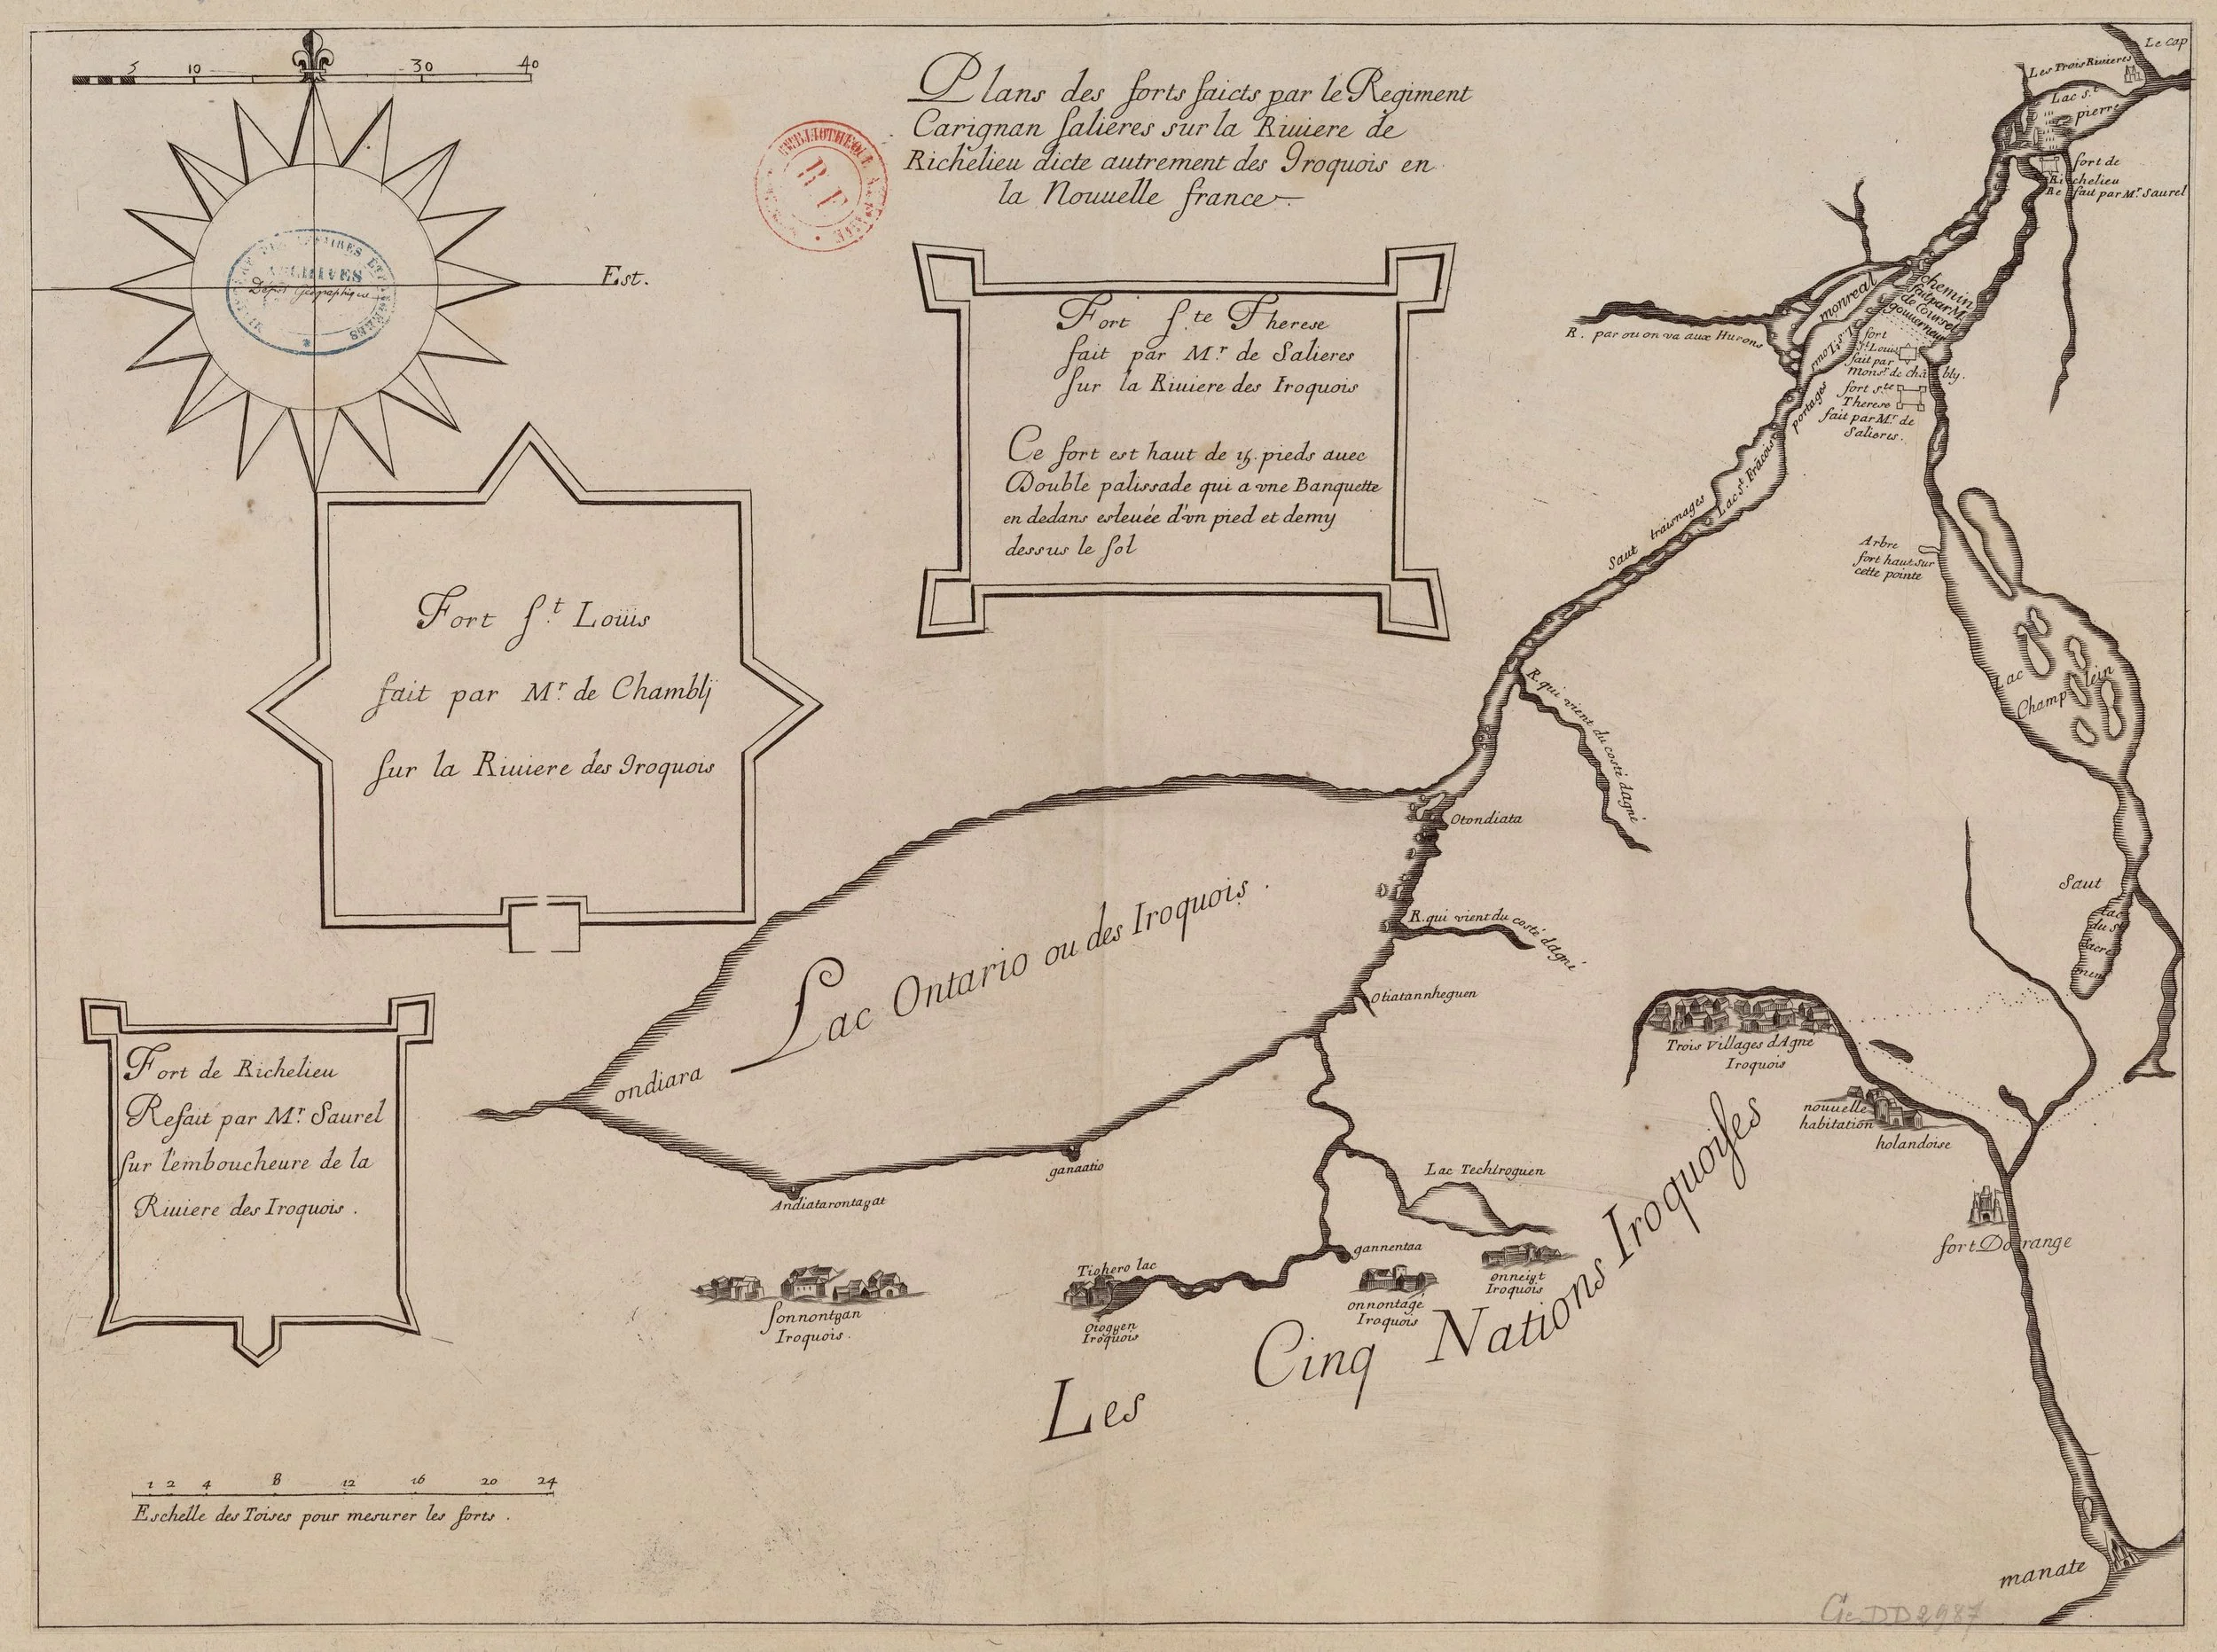 5 10 30 40
Plans des forts faicts par le Regiment
Carignan Salieres sur la Riuiere de
Richelieu dicte autrement des Iroquois en
la Nouuelle france
BIBLIOTHEQUE
R F
ARCHIVES
Dépôt Géographique
Est.
Fort S.te Therese
fait par Mr. de Salieres
sur la Riuiere des Iroquois
Ce fort est haut de 15. pieds auec
Double palissade qui a vne Banquette
en dedans esleuée d'vn pied et demy
dessus le sol
Fort S.t Loüis
fait par Mr. de Chamblÿ
sur la Riuiere des Iroquois
Fort de Richelieu
Refait par Mr. Saurel
sur l'emboucheure de la
Riuiere des Iroquois .
1 2 4 8 12 16 20 24
Eschelle des Toises pour mesurer les forts .
Le Cap
Les Trois Riuieres
Lac S.t
pierre
fort de
Richelieu
Re fait par Mr. Saurel
chemin
fait par M.
de Coursel
gouuerneur
monreal
R. par ou on va aux Hurons
fort
S.t Louis
fait par
monsr. de châ bly.
fort S.te
Therese
fait par Mr. de
Salieres.
portages
Lac S.t Frâcois
Saut traisnages
Arbre
fort haut sur
cette pointe
Lac
Champ lein
R. qui vient du costé dagné
Otondiata
Saut
Lac
du S.t
Sacre
mem
R. qui vient du costé dagné
Otiatannheguen
Lac Ontario ou des Iroquois .
ondiara
Trois Villages dAgné
Iroquois
nouuelle
habitation
holandoise
ganaatio
Andiatarontagat
Lac Techiroguen
fort Dorange
gannentaa
Tiohero lac
onneiȣt
Iroquois
onnontagé
Iroquois
Sonnontȣan
Iroquois .
Oiogȣen
Iroquois
Les Cinq Nations Iroquoises
manate
Ge DD 2987